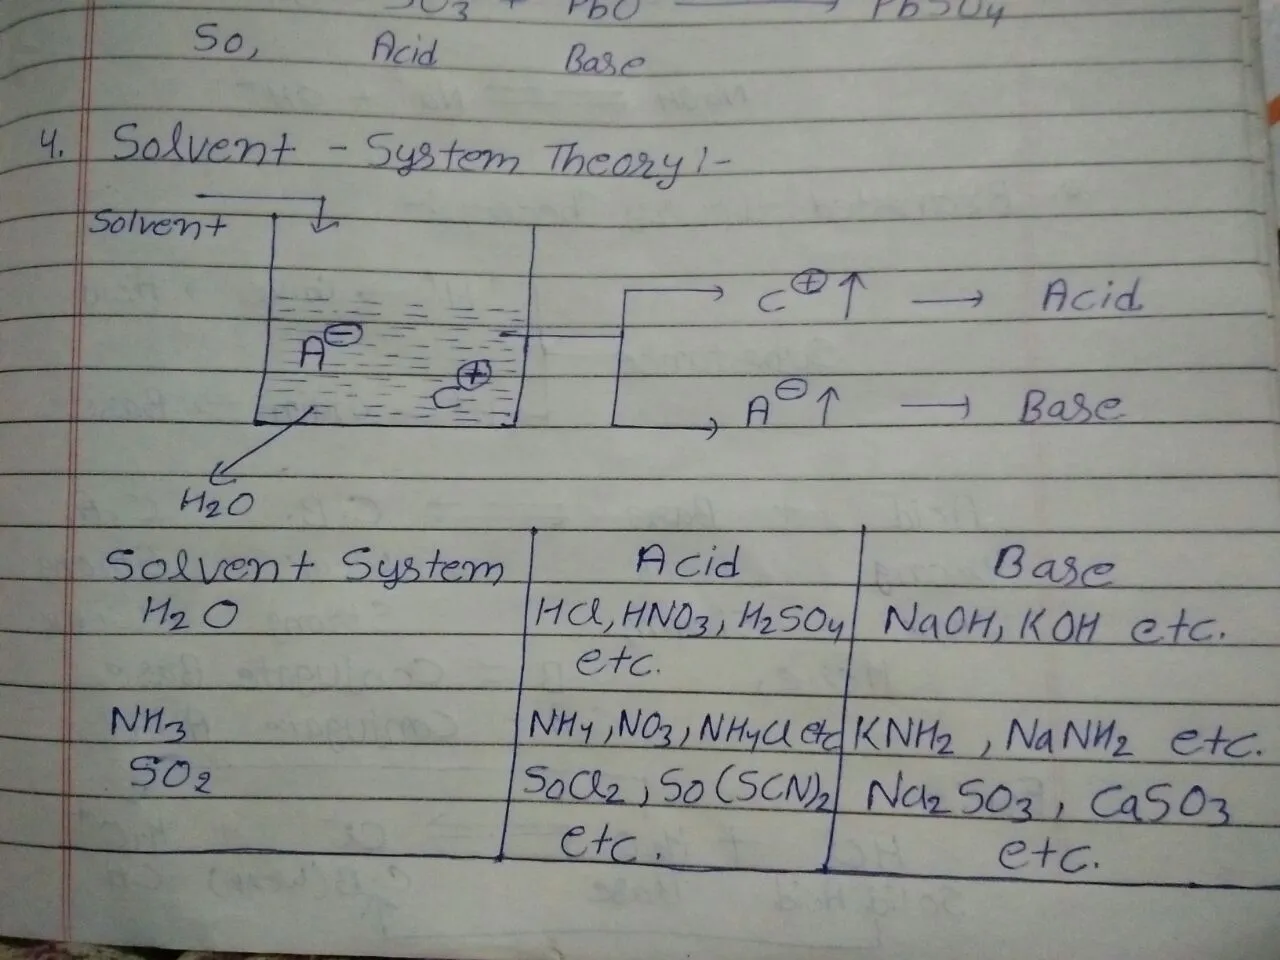 SO3 + PbO → PbSO4
So, Acid Base
4. Solvent - System Theory :-
Solvent
C⊕ ↑ → Acid
A⊖
C⊕
A⊖ ↑ → Base
H2O
Solvent System Acid Base
H2O HCl, HNO3, H2SO4 NaOH, KOH etc.
etc.
NH3 NH4, NO3, NH4Cl etc KNH2, NaNH2 etc.
SO2 SoCl2, So(SCN)2 Na2SO3, CaSO3
etc. etc.